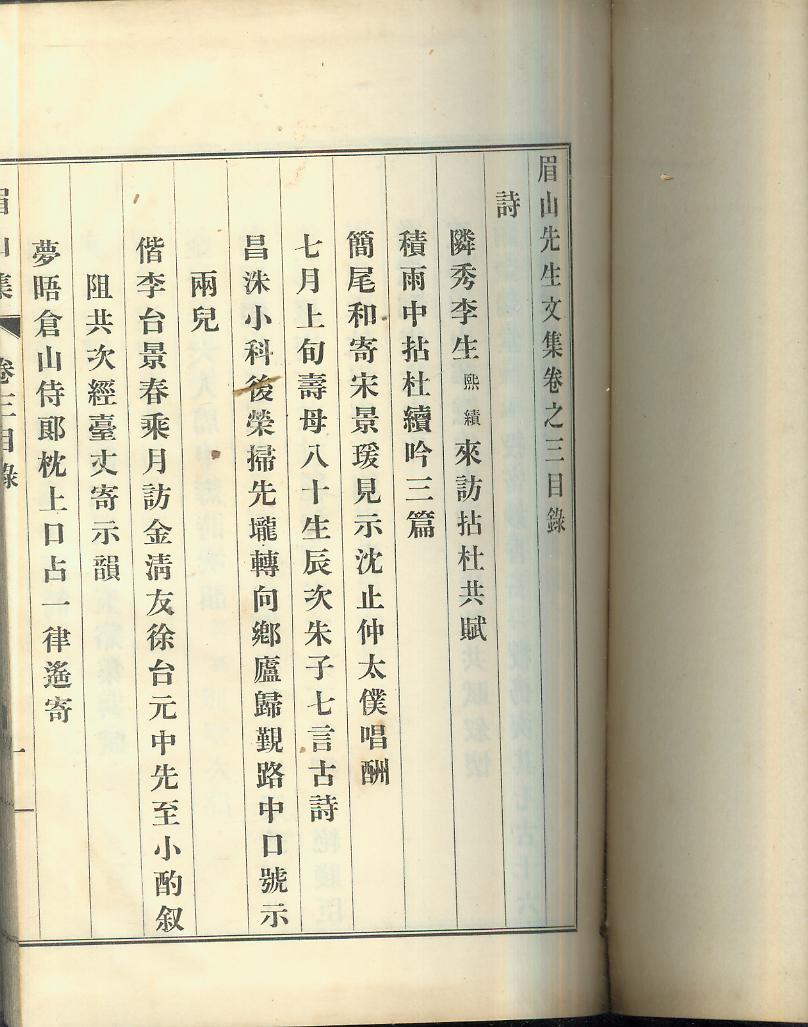 眉山先生文集卷之三目錄
詩
隣秀李生熙績來訪拈杜共賦
積雨中拈杜續吟三篇
簡尾和寄宋景瑗見示沈止仲太僕唱酬
七月上旬壽母八十生辰次朱子七言古詩
昌洙小科後榮掃先壠轉向鄕廬歸覲路中口號示
兩兒
偕李台景春乘月訪金淸友徐台元中先至小酌叙
阻共次經臺丈寄示韻
夢晤倉山侍郞枕上口占一律遙寄
眉山集 卷三目錄 一